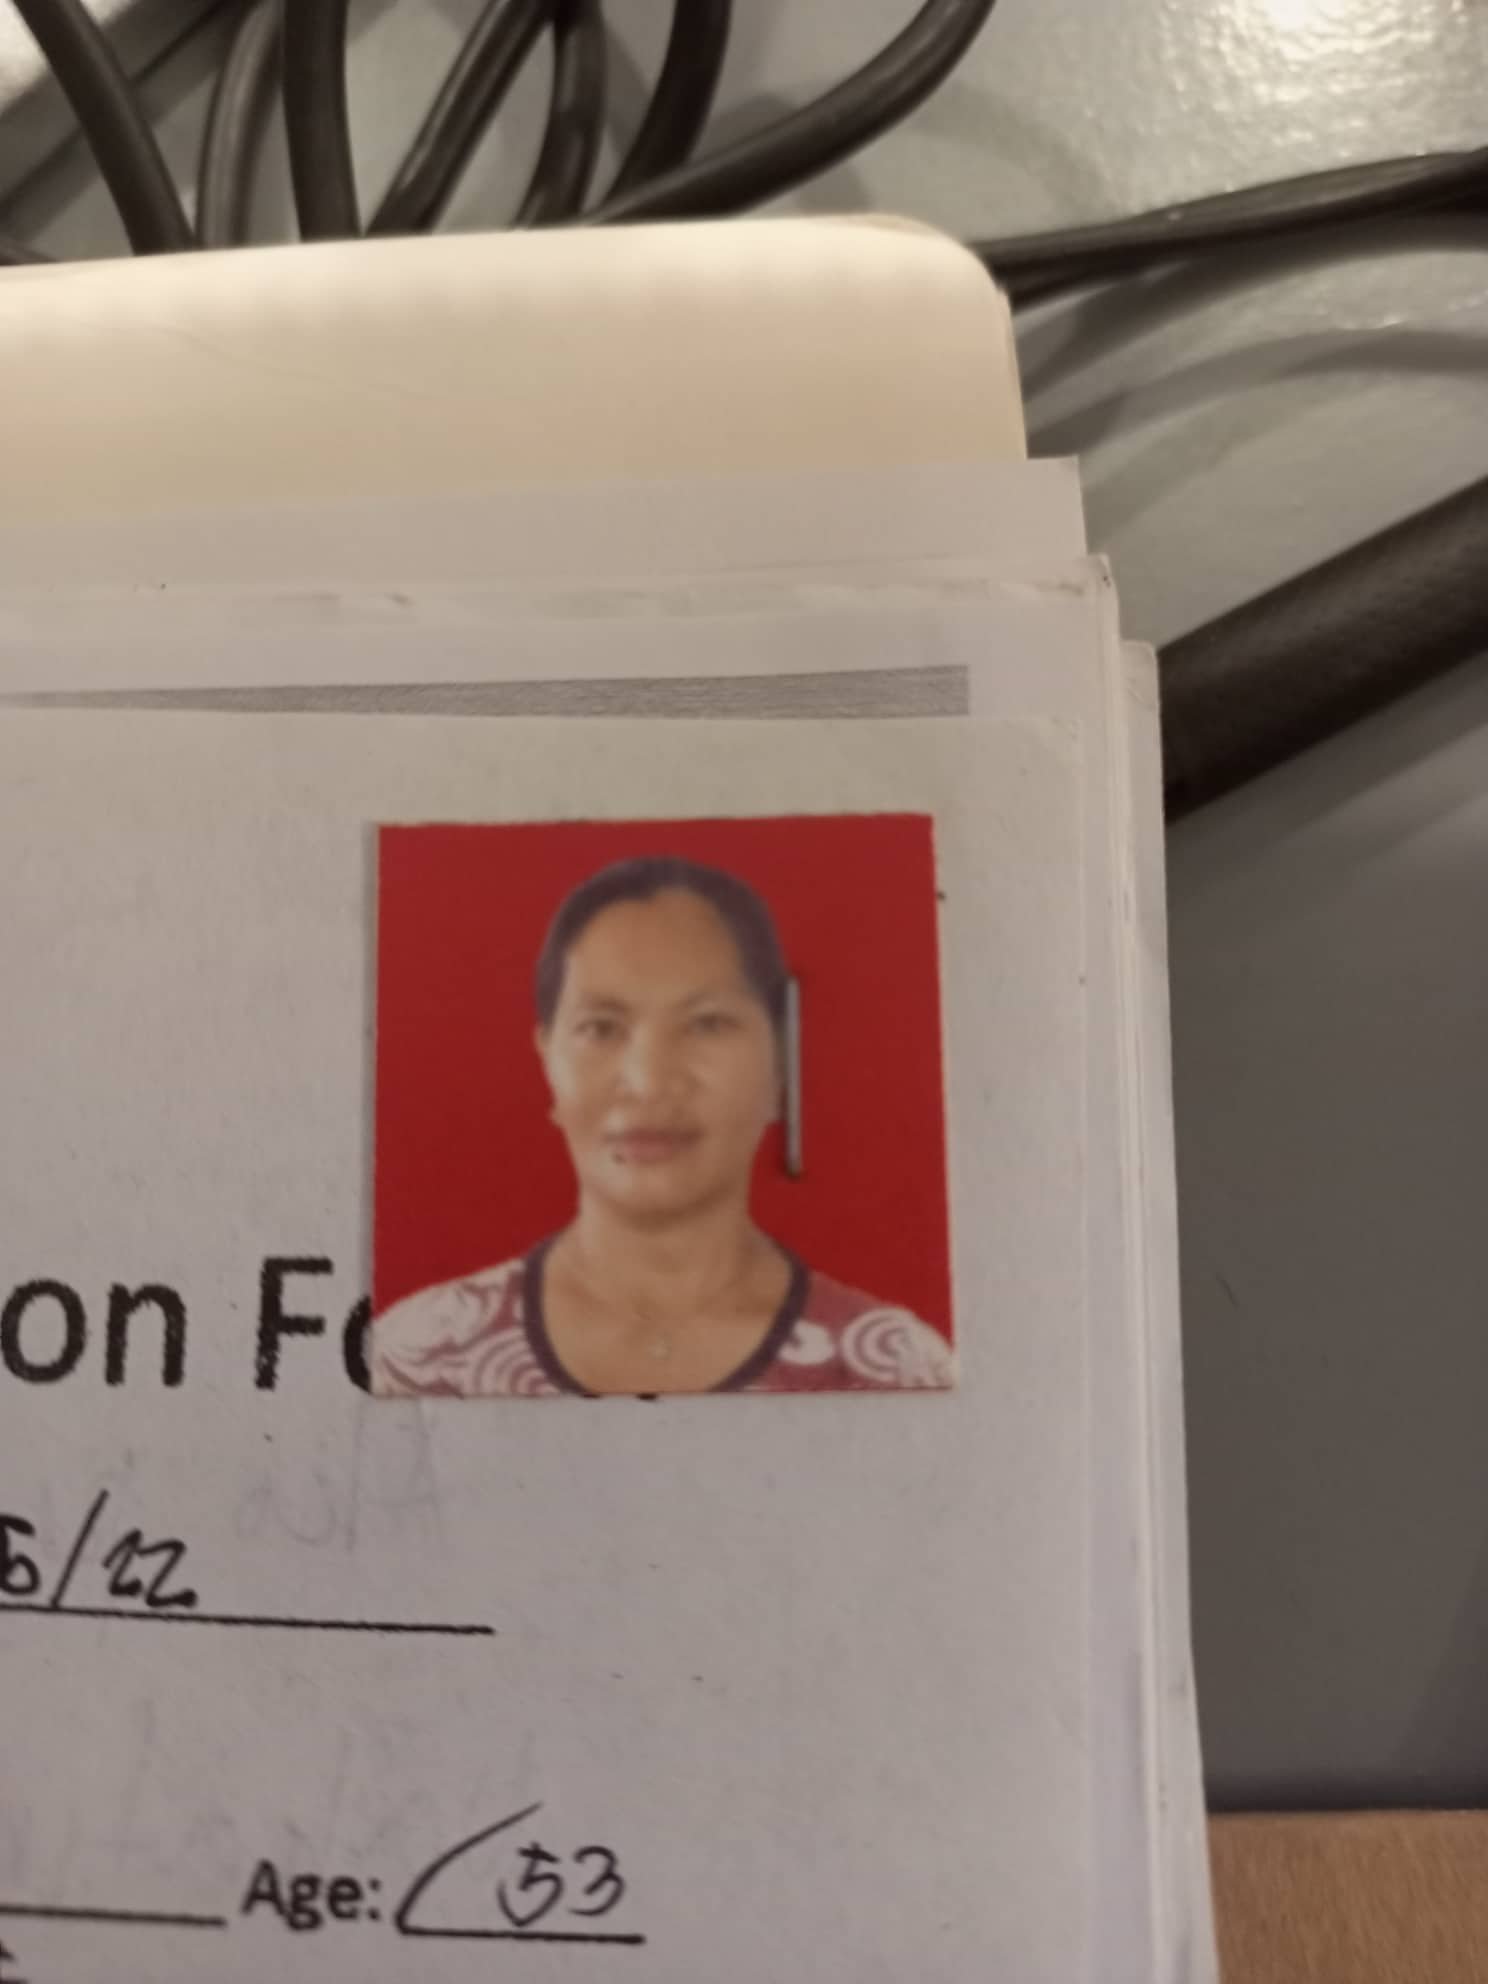 on Fo
5/22
Age: 53